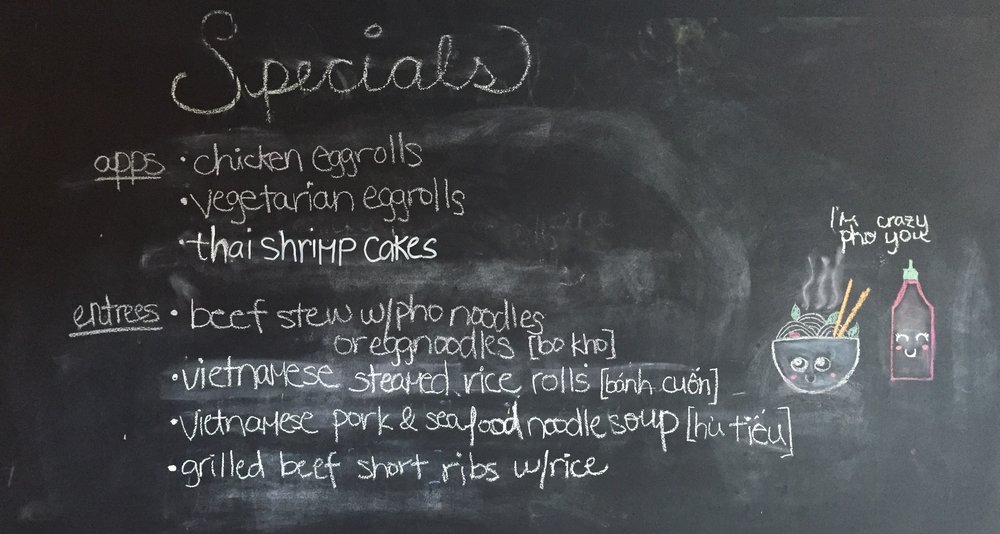 Specials
apps • chicken eggrolls
• vegetarian eggrolls
• thai shrimp cakes
I'm crazy
pho you
entrees • beef stew w/pho noodles
or eggnoodles [bo kho]
• vietnamese steamed rice rolls [bánh cuốn]
• vietnamese pork & seafood noodle soup [hù tiếu]
• grilled beef short ribs w/rice